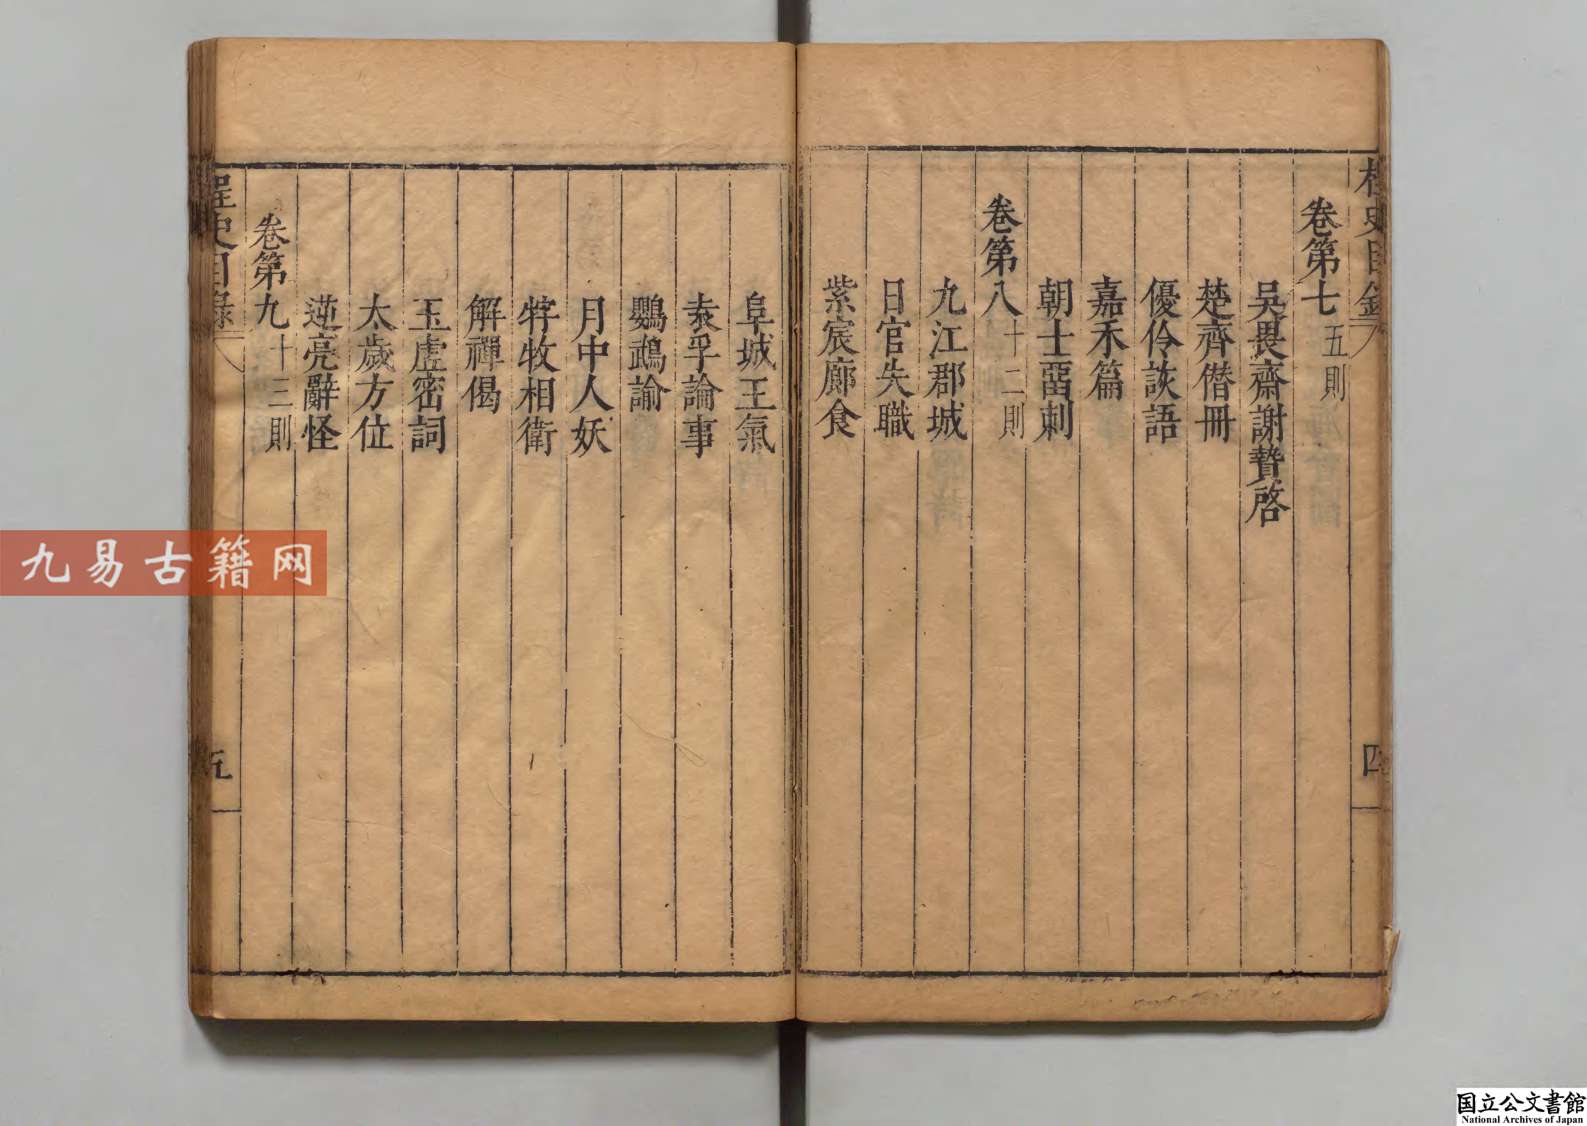 卷第七五則
吳畏齋謝贄啓
楚齊僭冊
優伶詼語
嘉禾篇
朝士留刺
卷第八十二則
九江郡城
日官失職
紫宸廊食
阜城王氣
袁孚論事
鸚鵡諭
月中人妖
牸牧相衛
解禪偈
玉虛密詞
太歲方位
逆亮辭怪
卷第九十三則
桯史目錄
四
桯史目錄
五
九易古籍网
国立公文書館
National Archives of Japan